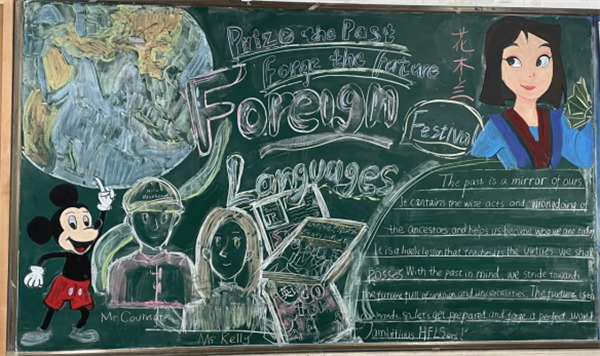 Prize the Past
Forge the Future
Foreign
Festival
Languages
花木兰
The past is a mirror of ours.
It contains the wise acts and wrongdoing of
the ancestors and helps us become who we are today
It is a lively lesson that teaches us the virtues we shall
posses. With the past in mind, we stride towards
the future full of unknown and uncertainties. The furture is in
hands. So let's get prepared and forge a perfect world
HFLSers!
Ms Kelly